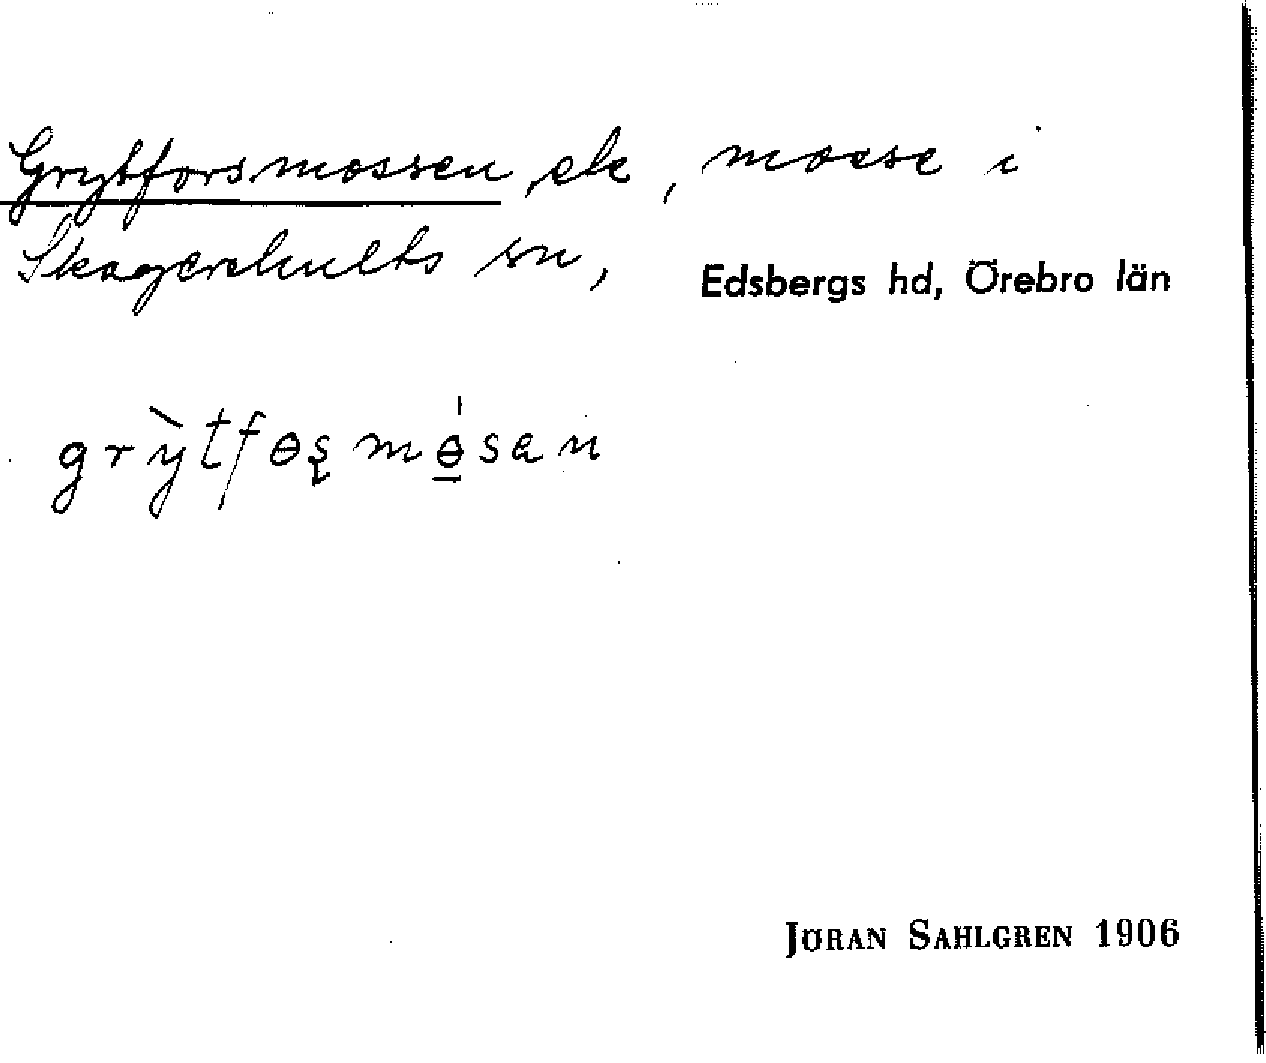 Grytforsmossen, ele, mosse i
Skagershults sn, Edsbergs hd, Örebro län
grỳtfɵʂmɵ̱́san
JÖRAN SAHLGREN 1906